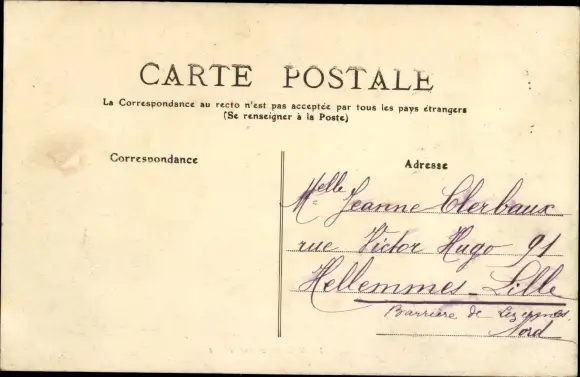 CARTE POSTALE
La Correspondance au recto n'est pas acceptée par tous les pays étrangers
(Se renseigner à la Poste)
Correspondance
Adresse
Melle Jeanne Clerbaux
rue Victor Hugo 91
Hellemmes-Lille
Barrière de Lezennes
Nord